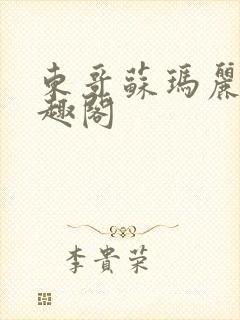 東哥蘇瑪麗
趣閣
李貴荣